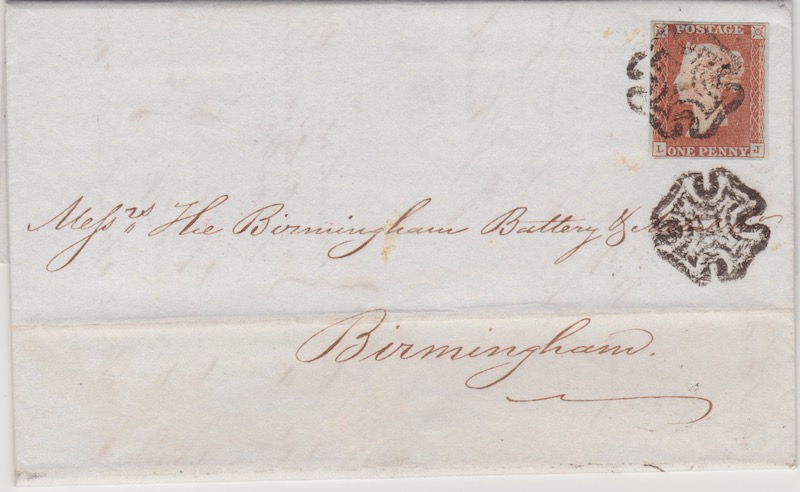 POSTAGE
L J
ONE PENNY
Messrs The Birmingham Battery &
Birmingham.